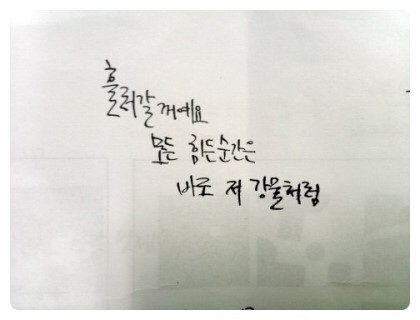 흘러갈꺼예요
모든 힘든순간은
바로 저 강물처럼